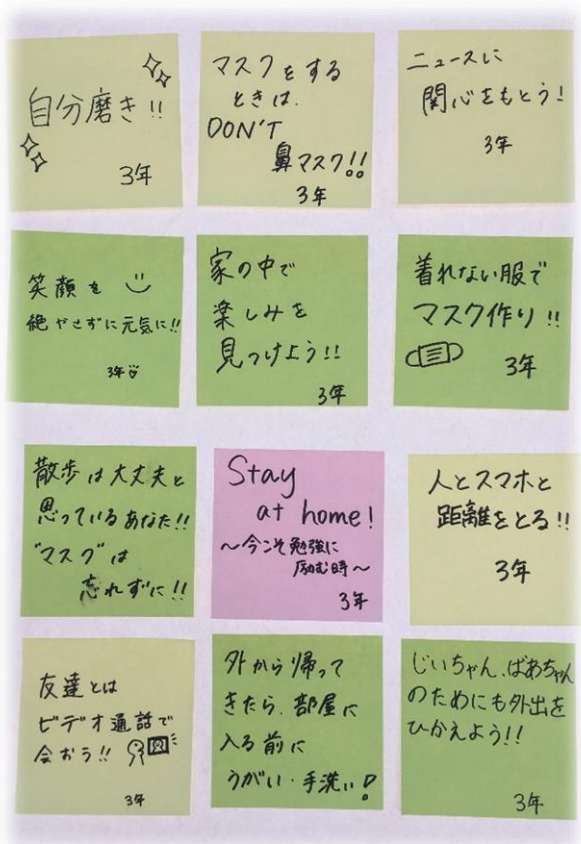 自分磨き!!
3年
マスクをする
ときは.
DON'T
鼻マスク!!
3年
ニュースに
関心をもとう!
3年
笑顔を
絶やさずに元気に!!
3年
家の中で
楽しみを
見つけよう!!
3年
着れない服で
マスク作り!!
3年
散歩は大丈夫と
思っているあなた!!
"マスク"は
忘れずに!!
Stay
at home!
～今こそ勉強に
励む時～
3年
人とスマホと
距離をとる!!
3年
友達とは
ビデオ通話で
会おう!!
3年
外から帰って
きたら、部屋に
入る前に
うがい・手洗い!
じいちゃん、ばあちゃん
のためにも外出を
ひかえよう!!
3年